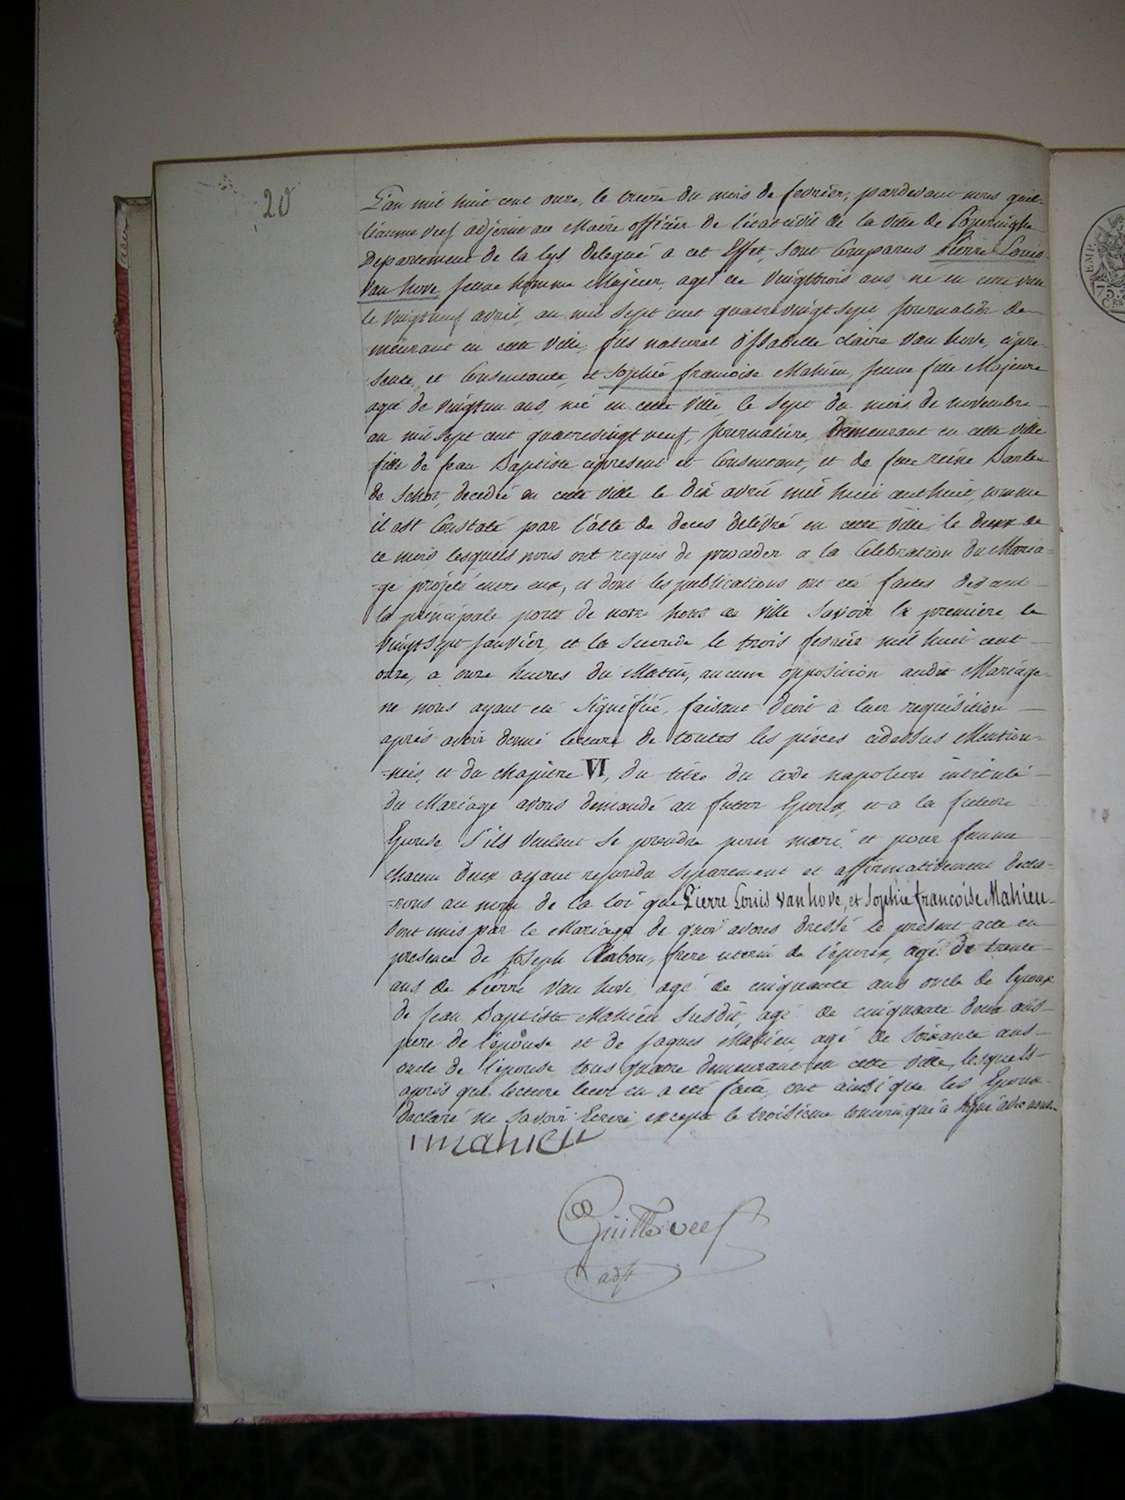 20
L'an mil huit cent onze, le treize du mois de fevrier, pardevant nous guil-
liaume veef adjoint au Maire officier de l'état civil de la ville de Poperinghe
Departement de la lys delegué a cet Effet, sont Comparus Pierre Louis
Van hove, jeune homme Majeur, agé de vingttrois ans, né en cette ville
le vingtneuf avril, an mil sept cent quatrevingt sept, journalier de-
meurant en cette ville, fils naturel d'Issabelle claire van hove, cipre-
sente, et Consentante, et Sophie francoise Mahieu, jeune fille Majeure
agée de vingtun ans, née en cette ville, le sept du mois de novembre
an mil sept cent quatrevingt neuf, journaliere, Demeurant en cette ville
fille de jean Baptiste cipresent et Consentant, et de feue reine Barbe
de Schot, decedée en cette ville le dix avril mil huit cent huit, comme
il est Constaté par l'atte de deces delivré en cette ville, le deux de
ce mois lesquels nous ont requis de proceder a la Celebration du Maria-
-ge projeté entre eux, et dont les publications ont été faites devant
la principale porte de notre hotel de ville Savoir la premiere, le
vingtsept janvier, et la seconde le trois fevrier mil huit cent
onze, a onze heures du Matin, aucune opposition audit Mariage
ne nous ayant été signifiée, faisant droit a leur requisition
après avoir donné lecture de toutes les pièces cidessus Mention-
-nées, et du chapitre VI, du titre du code napoleon intitulé
du Mariage avons demandé au futur Epoux, et a la future
Epouse s'ils veulent se prendre pour mari, et pour femme
chacun d'eux ayant repondu separement et affirmativement decla-
-rons au nom de la loi que Pierre Louis van hove, et Sophie francoise Mahieu
sont unis par le Mariage de quoi avons dressé le present acte en
presence de Joseph frere uterin de l'epoux, agé de trente
ans de Pierre Van hove agé de cinquante ans oncle de l'epoux
de jean Baptiste Mahieu susdit, agé de cinquante deux ans
pere de l'épouse et de jaques Mahieu, agé de soixante ans
oncle de l'épouse tous quatre demeurant en cette ville, lesquels
après que lecture leur en a été faite, ont ainsi que les Epoux
declaré ne savoir Ecrire excepté le troisieme temoin qui a signé avec nous
mahieu
Guille veef
adjt